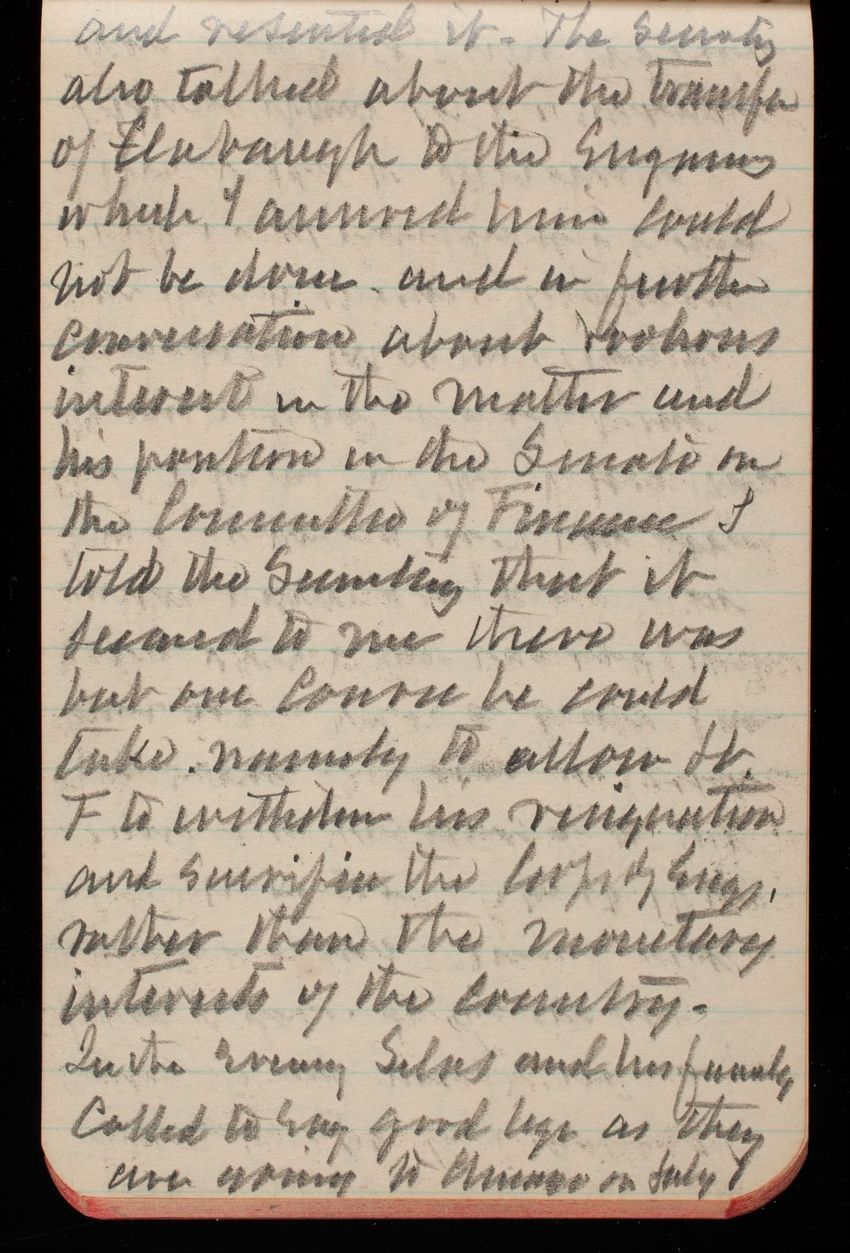 and resented it - The Secretary
also talked about the transfer
of Clabaugh to the Engineers
which I assured him could
not be done. and in further
conversation about Voorhees
interest in the matter and
his position in the Senate on
the Committee of Finance I
told the Secretary that it
seemed to me there was
but one course he could
take. namely to allow Lt.
F to withdraw his resignation
and sacrifice the Corps of Engs,
rather than the monetary
interests of the country -
In the evening Silas and his family
Called to say good bye as they
are going to Chicago on July